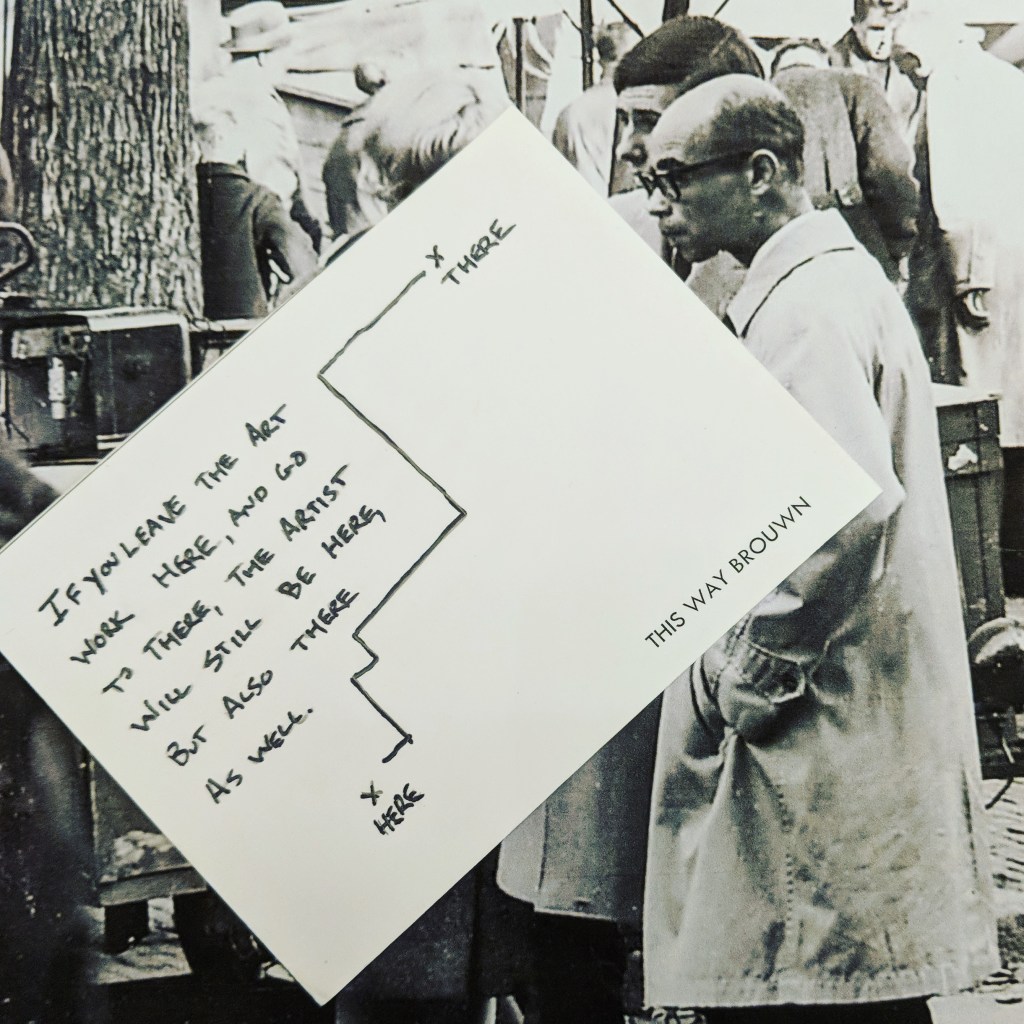 X
THERE
IF YOU LEAVE THE ART
WORK HERE, AND GO
TO THERE, THE ARTIST
WILL STILL BE HERE,
BUT ALSO THERE
AS WELL.
X
HERE
THIS WAY BROUWN